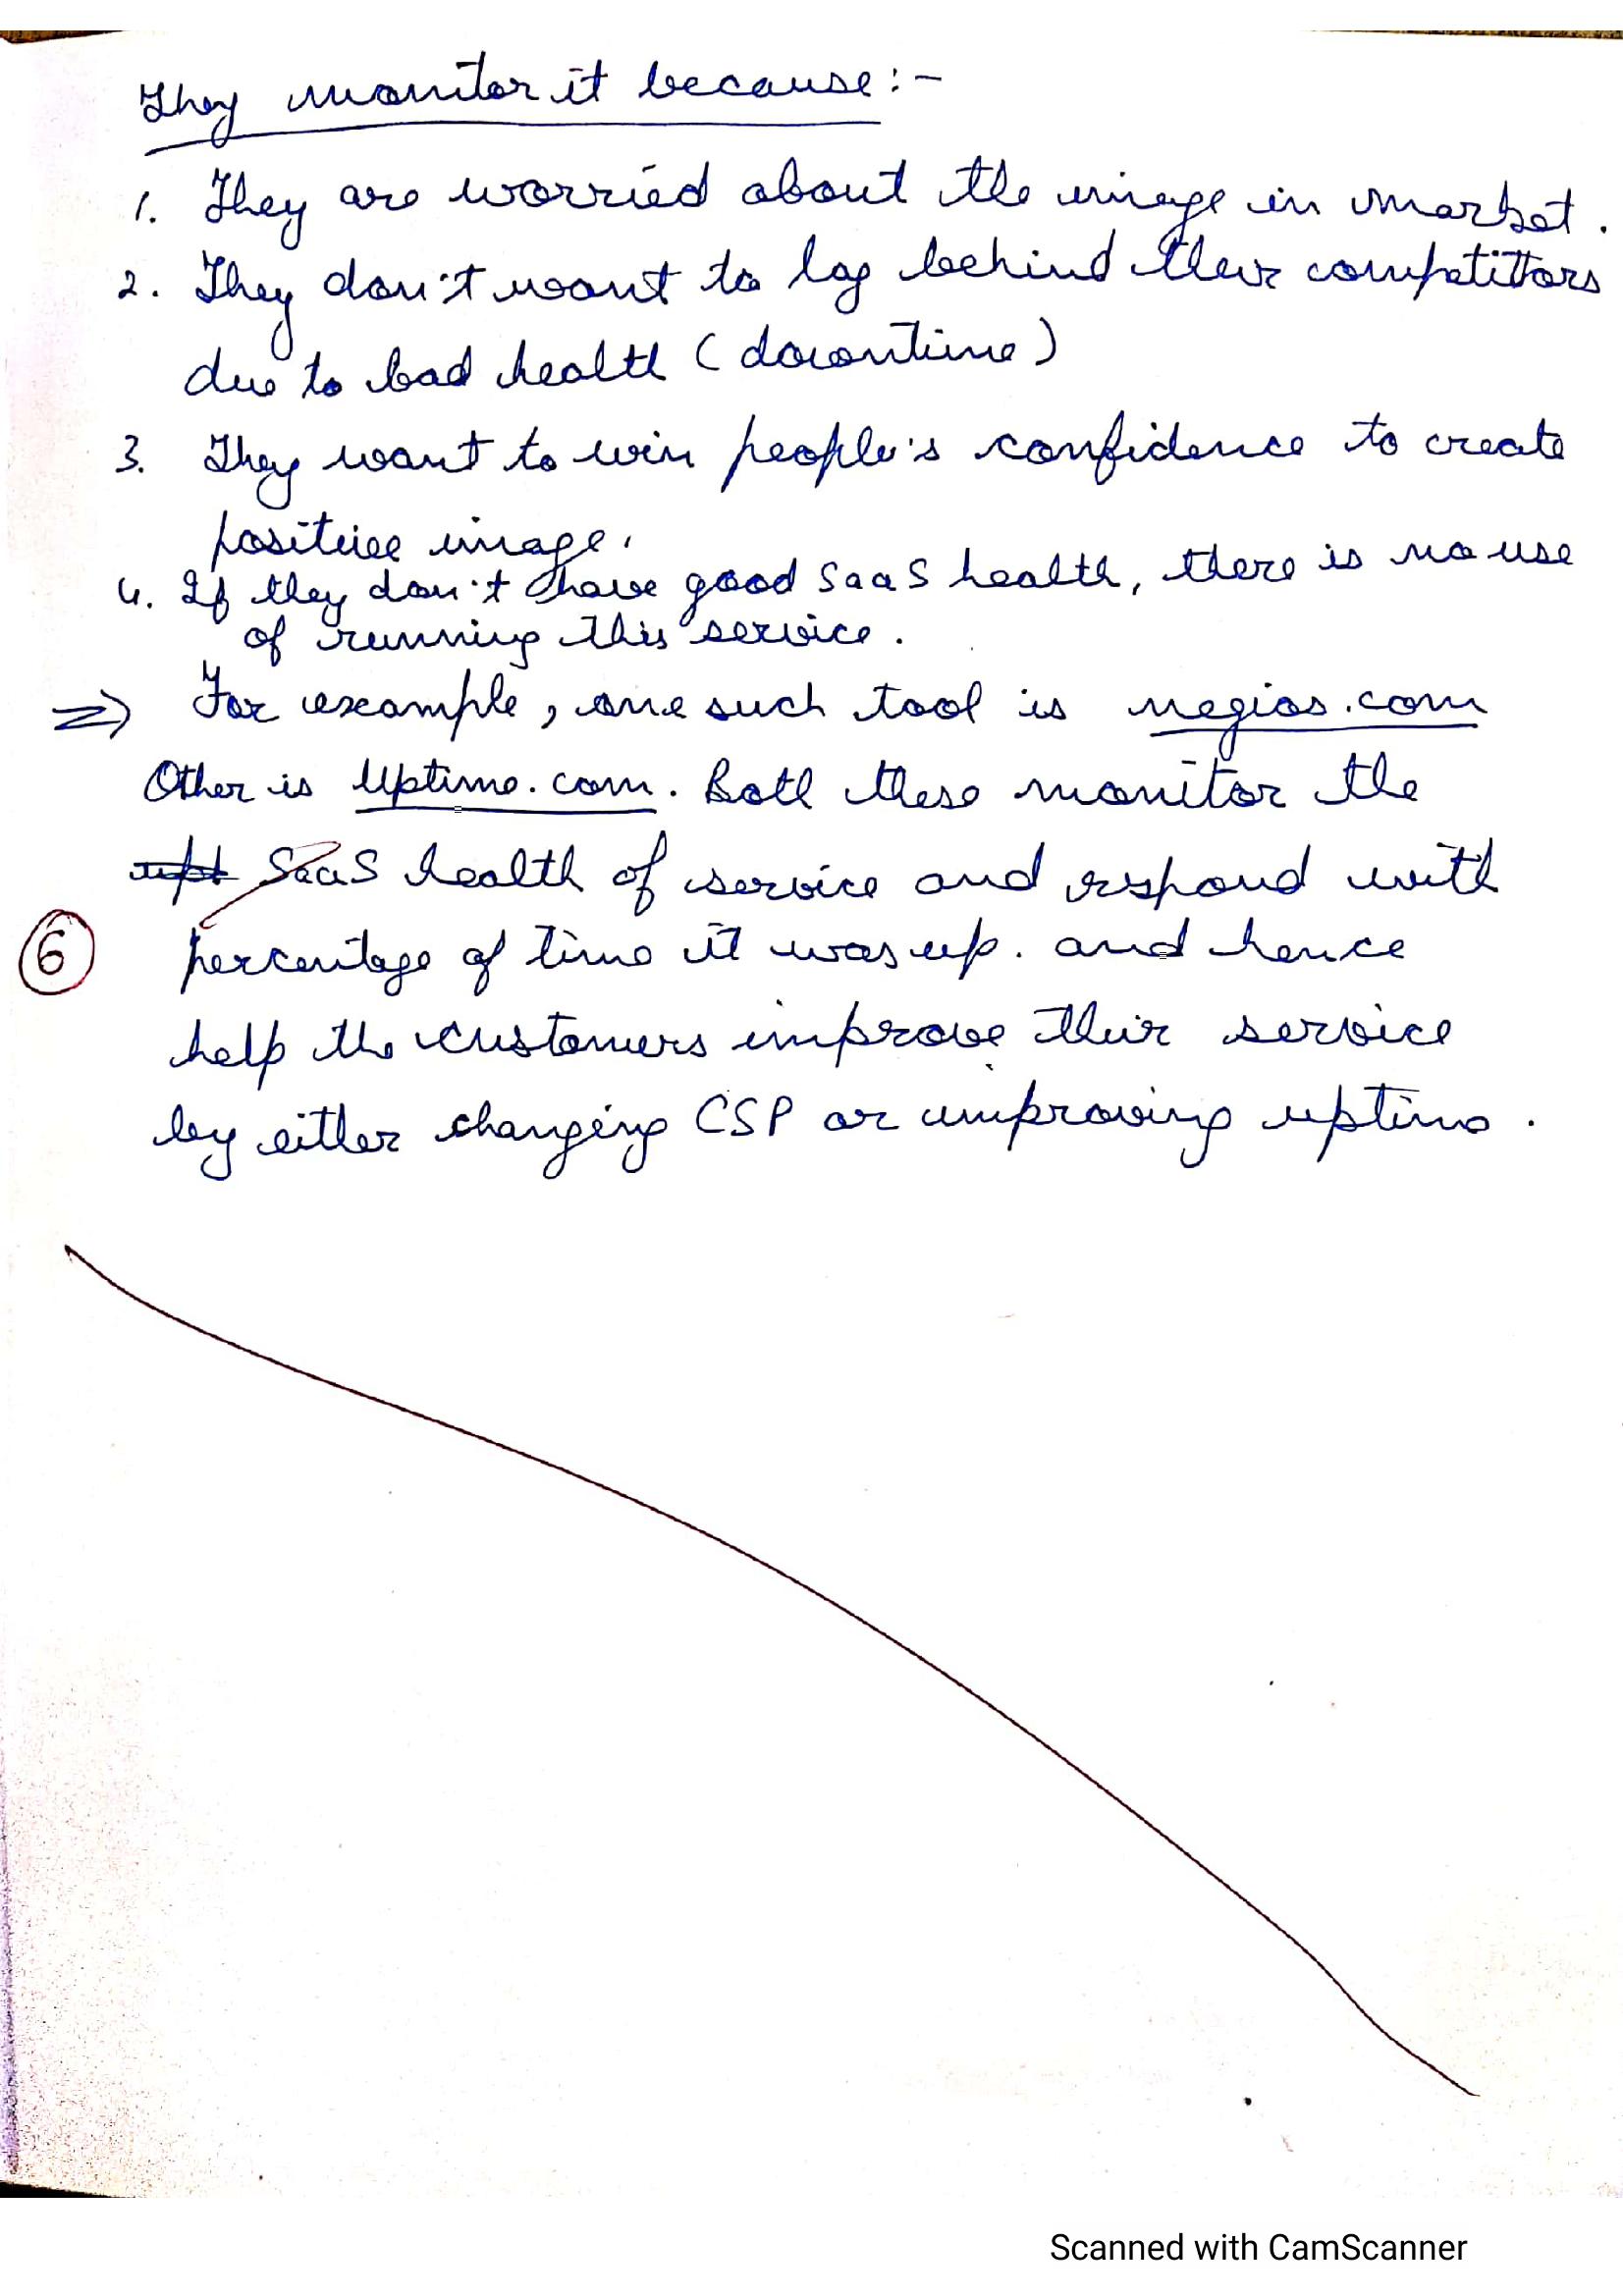 They monitor it because:-
1. They are worried about the image in market.
2. They don't want to lag behind their competittors
due to bad health (downtime)
3. They want to win people's confidence to create
positive image.
4. If they don't have good SaaS health, there is no use
of running this service.
=> For example, one such tool is negios.com
Other is Uptime.com. Both these monitor the
upt SaaS health of service and respond with
6 percentage of time it was up. and hence
help the customers improve their service
by either changing CSP or improving uptime.
Scanned with CamScanner